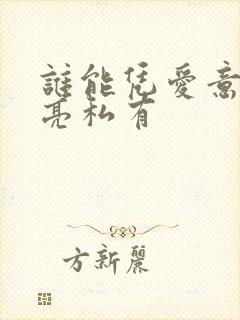 誰能凭愛意
亮私有
方新麗